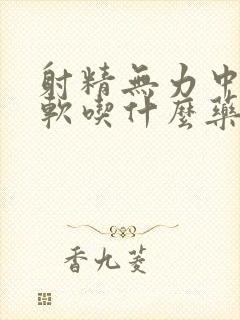 射精無力中
軟喫什麼藥
香九菱